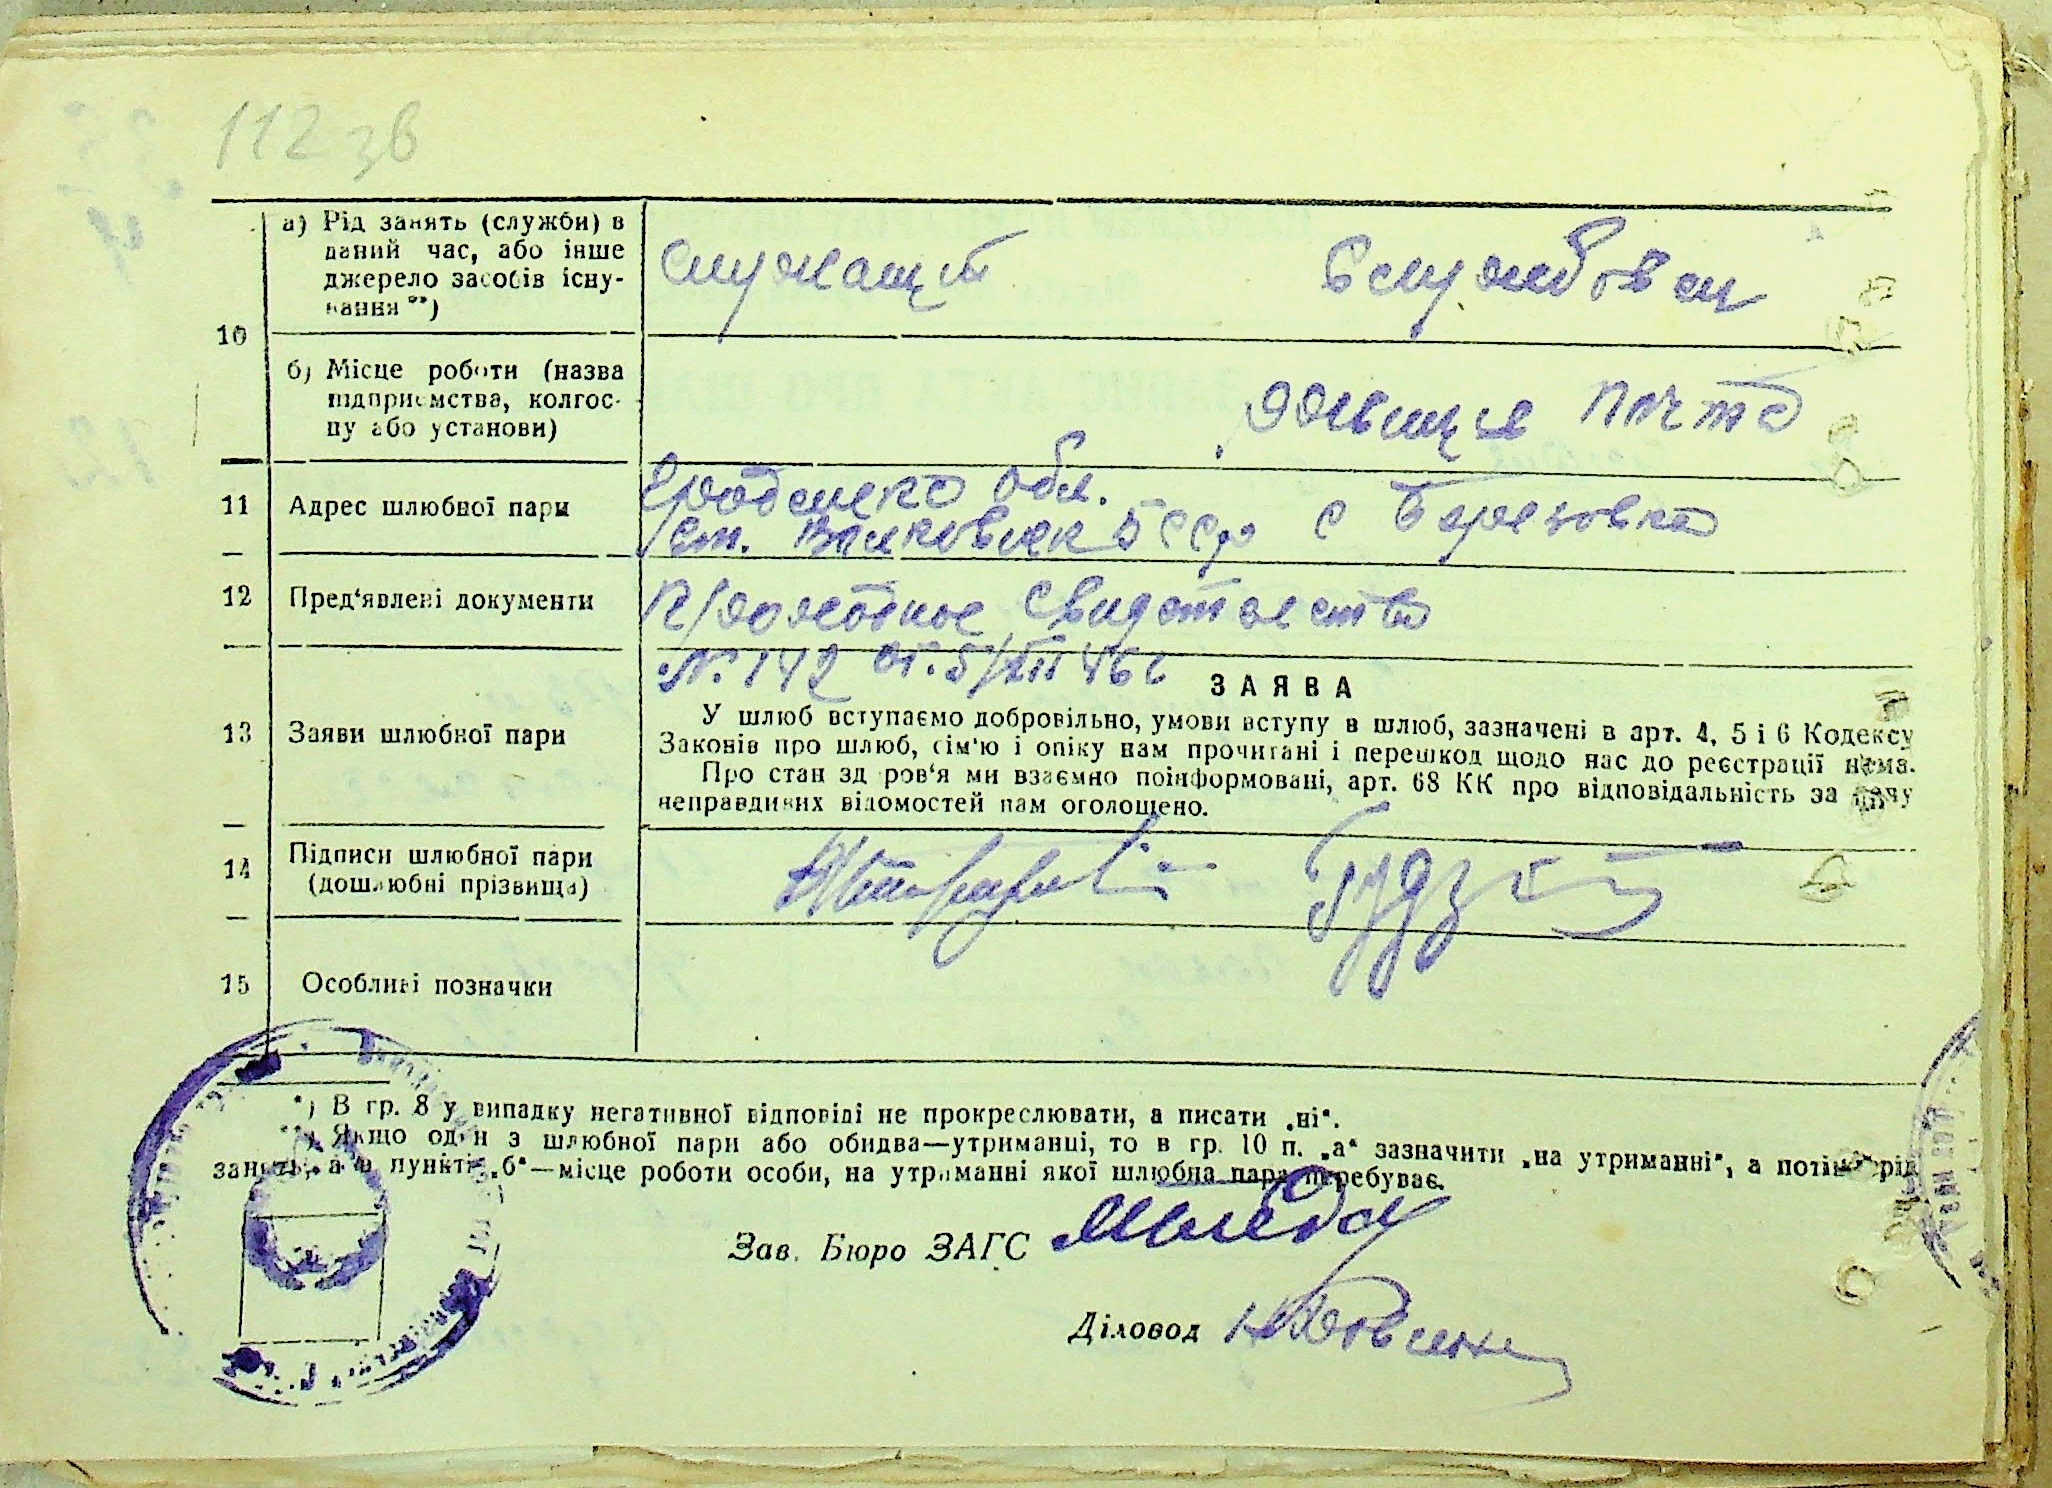 112 зв
10
а) Рід занять (служби) в
даний час, або інше
джерело засобів існу-
вання **)
служащий
службовец
б) Місце роботи (назва
підприємства, колгос-
пу або установи)
почта
11
Адрес шлюбної пари
обл.
ст. Волковиск БССР с Березовка
12
Пред‘явлені документи
свидетельство
N. 142 от. 5/XII 46 г
13
Заяви шлюбної пари
ЗАЯВА
У шлюб вступаємо добровільно, умови вступу в шлюб, зазначені в арт. 4, 5 і 6 Кодексу
Законів про шлюб, сім'ю і опіку нам прочитані і перешкод щодо нас до реєстрації нема.
Про стан здоров‘я ми взаємно поінформовані, арт. 68 КК про відповідальність за дачу
неправдивих відомостей нам оголошено.
14
Підписи шлюбної пари
(дошлюбні прізвища)
15
Особливі позначки
*) В гр. 8 у випадку негативної відповіді не прокреслювати, а писати „ні“.
**) Якщо один з шлюбної пари або обидва—утриманці, то в гр. 10 п. „а“ зазначити „на утриманні“, а потім рід
занять, а в пункті „б“—місце роботи особи, на утриманні якої шлюбна пара перебуває.
Зав. Бюро ЗАГС
Діловод